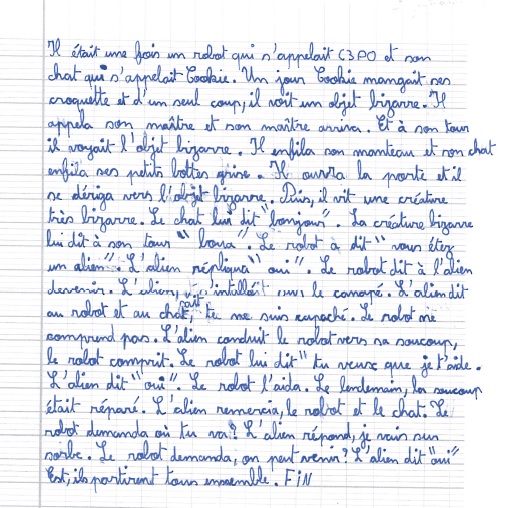 Il était une fois un robot qui s'appelait C3PO et son
chat qui s'appelait Cookie. Un jour Cookie mangait ses
croquette et d'un seul coup, il voit un objet bizarre. Il
appela son maître et son maître arriva. Et à son tour
il voyait l'objet bizarre. Il enfila son manteau et son chat
enfila ses petits bottes grise. Il ouvra la porte et il
se dériga vers l'objet bizarre. Puis, il vit une créature
très bizarre. Le chat lui dit "bonjour". La créature bizarre
lui dit à son tour "boura". Le robot à dit "vous étez
un alien". L'alien répliqua "oui". Le robot dit à l'alien
devenir. L'alien, s'intallait sur le canapé. L'alien dit
au robot et au chat, tu me suis capaché. Le robot ne
comprend pas. L'alien conduit le robot vers sa soucoup,
le robot comprit. Le robot lui dit "tu veux que je t'aide.
L'alien dit "oui". Le robot l'aida. Le lendemain, la soucoup
était réparé. L'alien remercia, le robot et le chat. Le
robot demanda où tu va? L'alien répond, je vais sur
sorbe. Le robot demanda, on peut venir? L'alien dit "oui"
Est, ils partirent tous ensemble. FiN